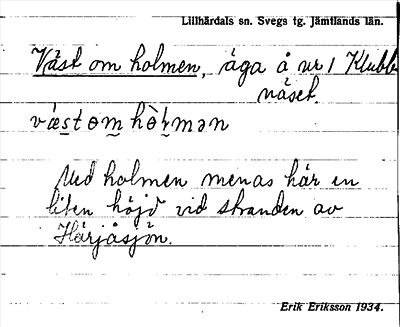 Lillhärdals sn. Svegs tg. Jämtlands län.
Väst om holmen, äga å nr 1 Klubb
näset.
Med holmen menas här en
liten höjd vid stranden av
Härjåsjön.
Erik Eriksson 1934.